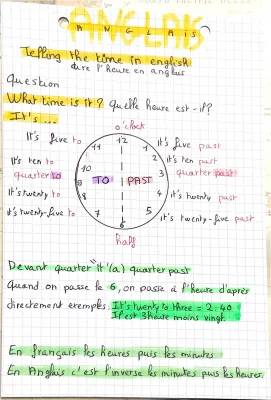 ANGLAIS
Telling the time in english
dire l'heure en anglais
Question
What time is it? quelle heure est-il?
It's ...
o'clock
It's five to 11 12 1 It's five past
It's ten to 10 2 It's ten past
quarter to 9 TO PAST 3 quarter past
It's twenty to 8 4 It's twenty past
It's twenty-five to 7 6 5 It's twenty-five past
half
Devant quarter "it'(a) quarter past
Quand on passe le 6, on passe à l'heure d'après
directement exemples: It's twenty to three = 2:40
Il est 3 heure moins vingt.
En français les heures puis les minutes
En Anglais c'est l'inverse les minutes puis les heures.